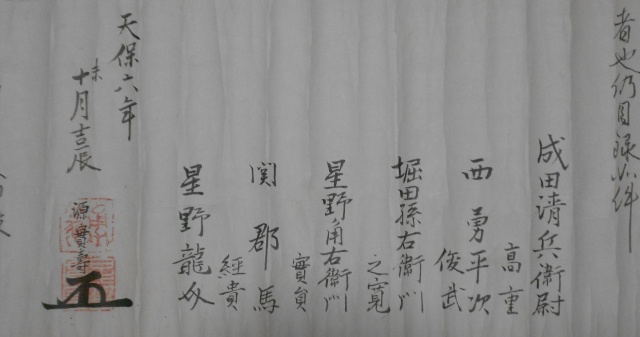 者也仍目録如件
成田清兵衛尉
高重
西勇平次
俊武
堀田孫右衛門
之寛
星野角右衛門
實員
関郡馬
經貴
星野龍
天保六年
未
十月吉辰
源實壽